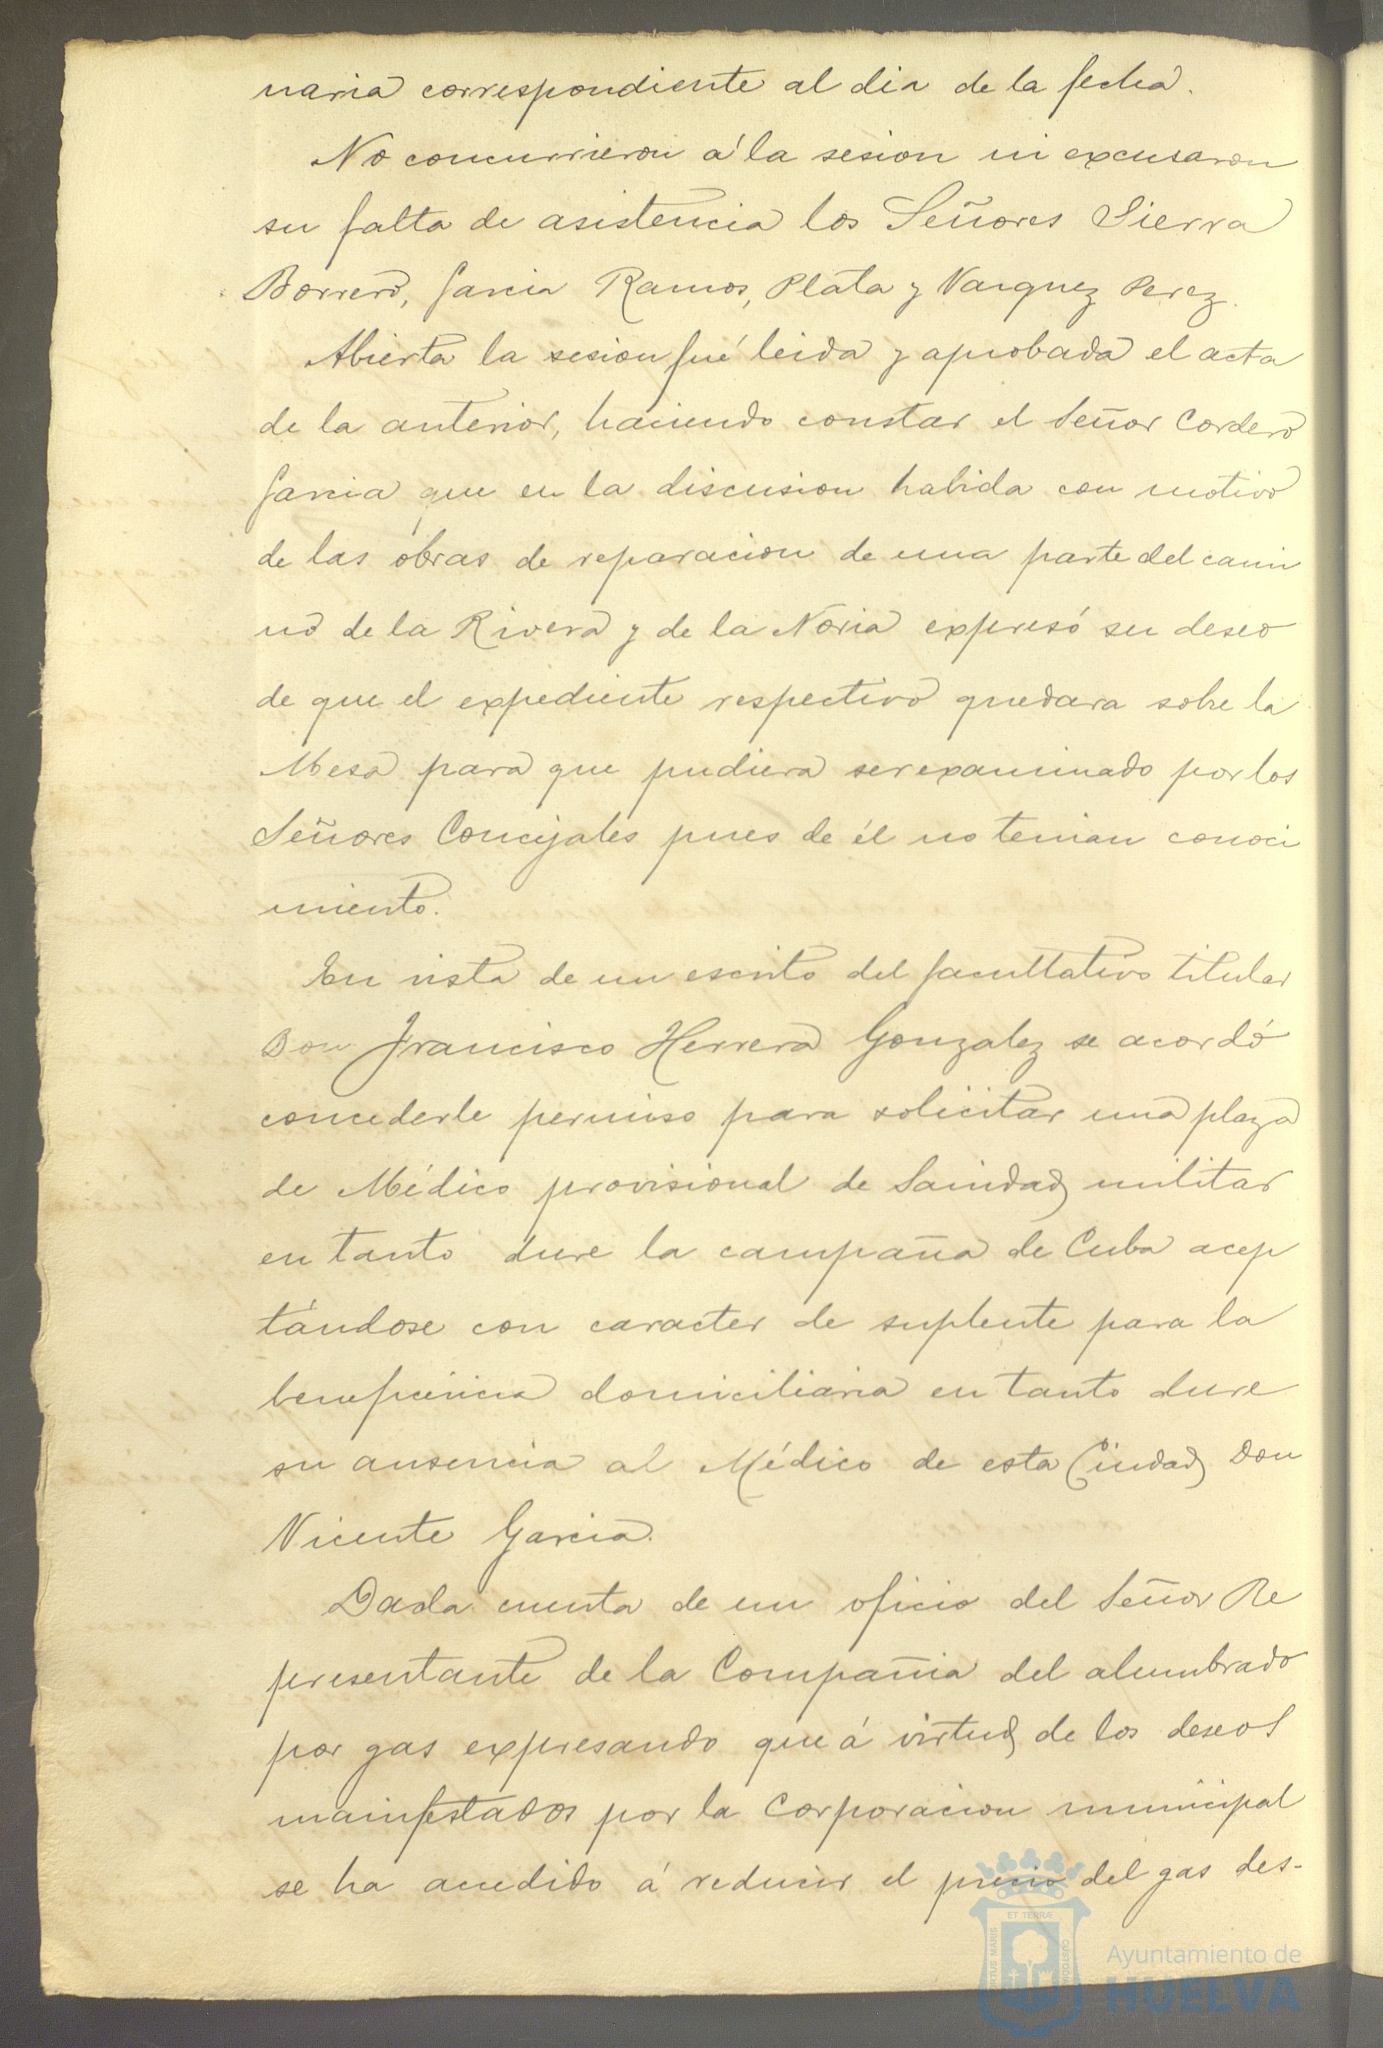 naria correspondiente al dia de la fecha.
No concurrieron á la sesion ni excusaron
su falta de asistencia los Señores Sierra
Borrero, Garcia Ramos, Plata y Vazquez Perez.
Abierta la sesion fué leida y aprobada el acta
de la anterior, haciendo constar el Señor Cordero
Garcia que en la discusion habida con motivo
de las obras de reparacion de una parte del cami
no de la Rivera y de la Noria expresó su deseo
de que el expediente respectivo quedara sobre la
Mesa para que pudiera ser examinado por los
Señores Concejales pues de él no tenian conoci
miento.
En vista de un escrito del facultativo titular
Don Francisco Herrera Gonzalez se acordó
concederle permiso para solicitar una plaza
de Médico provisional de Sanidad militar
en tanto dure la campaña de Cuba acep
tándose con caracter de suplente para la
beneficencia domiciliaria en tanto dure
su ausencia al Médico de esta Ciudad Don
Vicente Garcia.
Dada cuenta de un oficio del Señor Re
presentante de la Compañia del alumbrado
por gas expresando que á virtud de los deseos
manifestados por la Corporacion municipal
se ha accedido á reducir el precio del gas des-
Ayuntamiento de
HUELVA